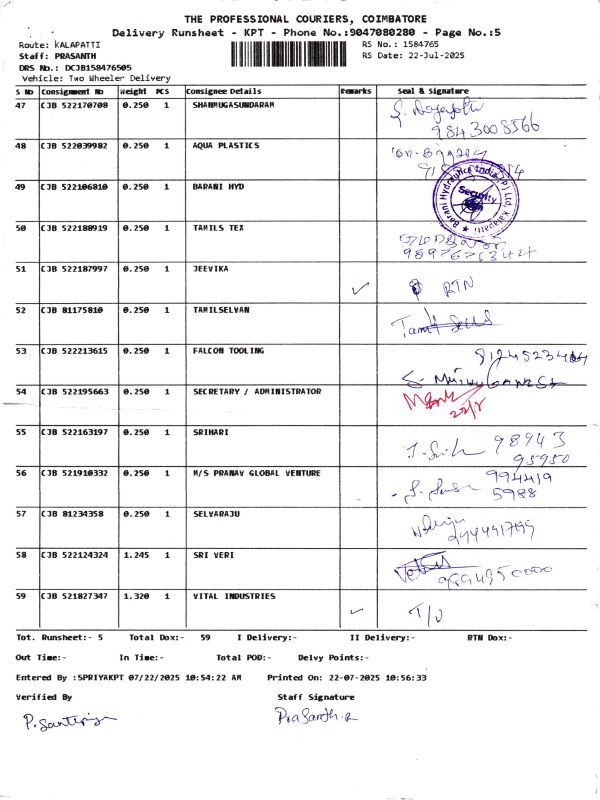 THE PROFESSIONAL COURIERS, COIMBATORE
Delivery Runsheet - KPT - Phone No.:9047080280 - Page No.:5
Route: KALAPATTI
RS No.: 1584765
Staff: PRASANTH
RS Date: 22-Jul-2025
DRS No.: DCJB158476505
Vehicle: Two Wheeler Delivery
S No Consignment No Weight PCS Consignee Details Remarks Seal & Signature
47 CJB 522170708 0.250 1 SHANMUGASUNDARAM
9843008566
48 CJB 522039982 0.250 1 AQUA PLASTICS
49 CJB 522106810 0.250 1 BARANI HYD
Barani Hydraulics India (P) Ltd, Kalapatti
Security
50 CJB 522188919 0.250 1 TAMILS TEX
51 CJB 522187997 0.250 1 JEEVIKA ✓ RTN
52 CJB 81175810 0.250 1 TAMILSELVAN
53 CJB 522213615 0.250 1 FALCON TOOLING
54 CJB 522195663 0.250 1 SECRETARY / ADMINISTRATOR
55 CJB 522163197 0.250 1 SRIHARI
98943
95950
56 CJB 521910332 0.250 1 M/S PRANAV GLOBAL VENTURE
994419
5988
57 CJB 81234358 0.250 1 SELVARAJU
58 CJB 522124324 1.245 1 SRI VERI
59 CJB 521827347 1.320 1 VITAL INDUSTRIES ✓
Tot. Runsheet:- 5 Total Dox:- 59 I Delivery:- II Delivery:- RTN Dox:-
Out Time:- In Time:- Total POD:- Delvy Points:-
Entered By :SPRIYAKPT 07/22/2025 10:54:22 AM Printed On: 22-07-2025 10:56:33
Verified By Staff Signature
Prasanth.R